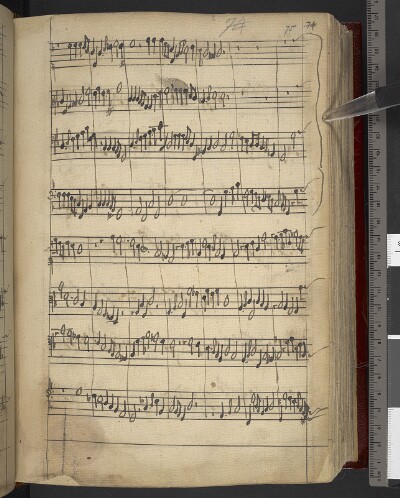 74
75 74